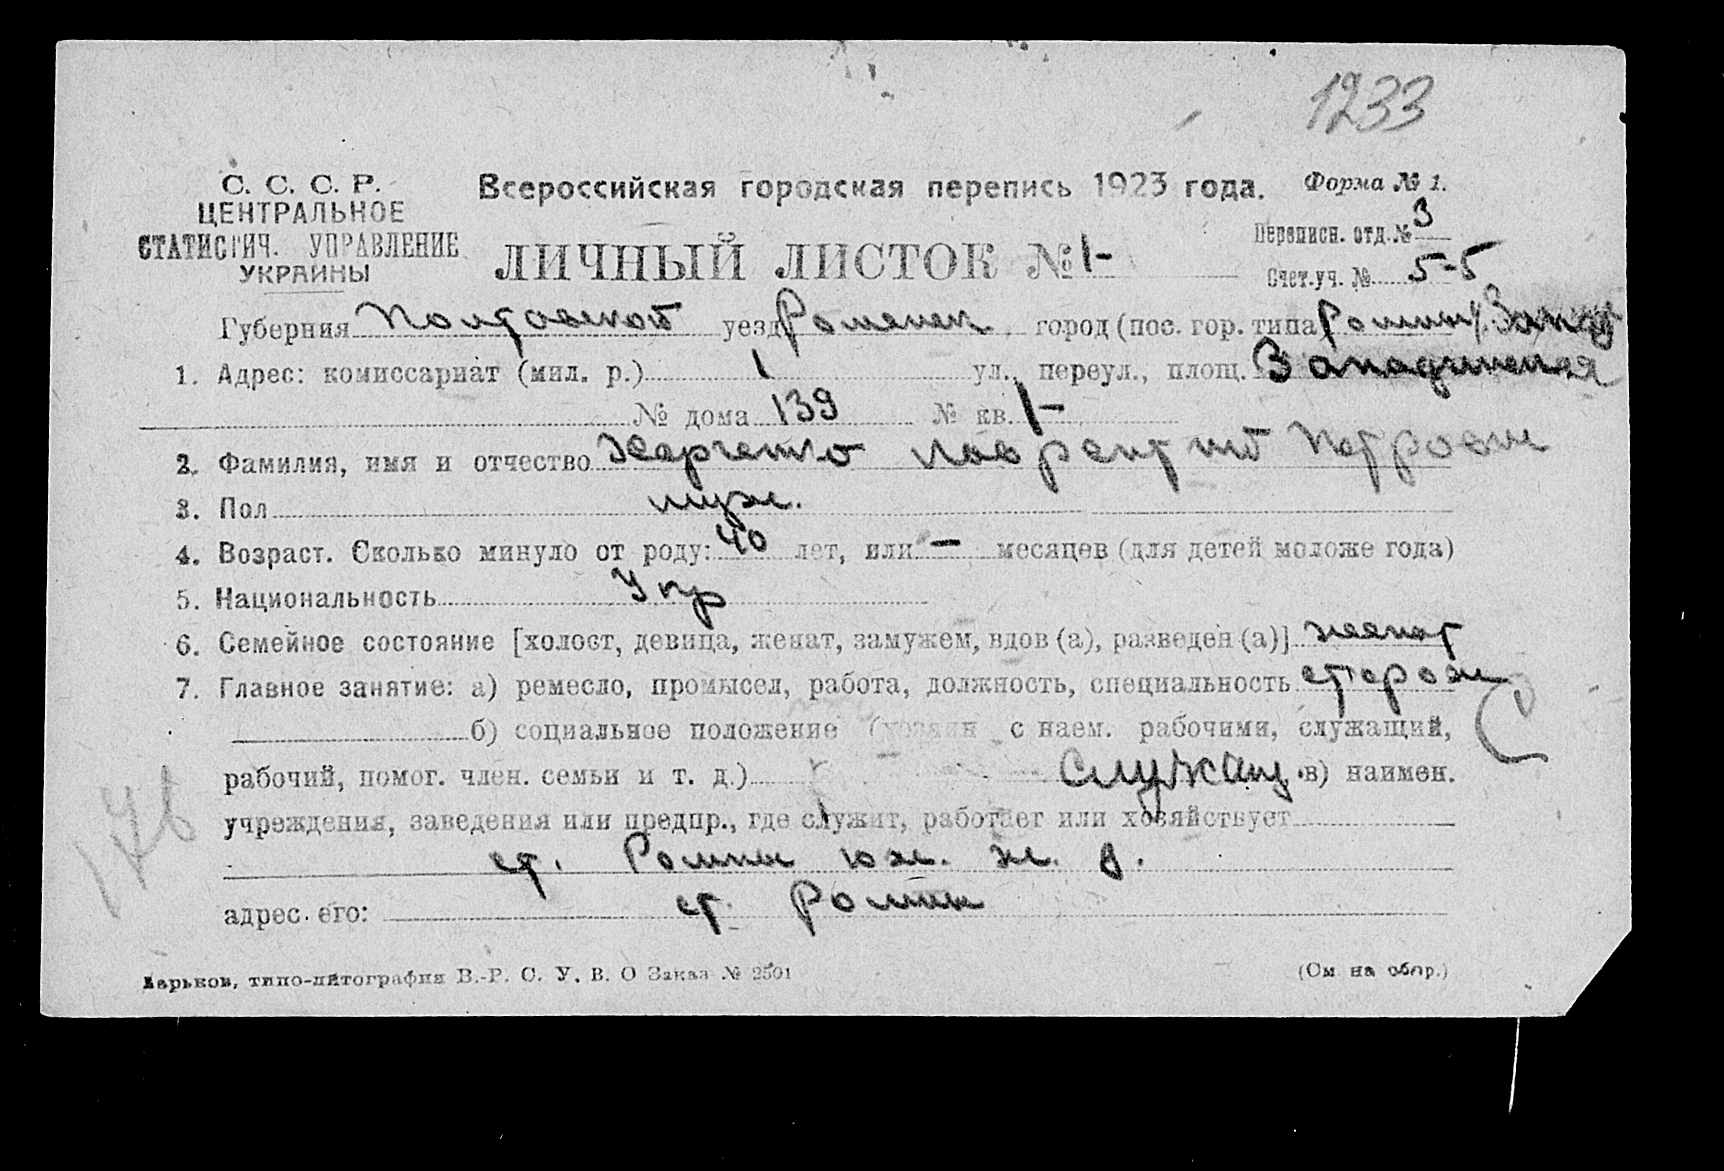 1233
С. С. С. Р.
ЦЕНТРАЛЬНОЕ
СТАТИСТИЧ. УПРАВЛЕНИЕ
УКРАИНЫ
Всероссийская городская перепись 1923 года.
Форма № 1.
ЛИЧНЫЙ ЛИСТОК № 1-
Переписн. отд. № 3
Счет.уч. № 5-5
Губерния Полтавской уезд Роменск, город (пос. гор. типа Ромны
1. Адрес: комиссариат (мил. р.) 1 ул., переул., площ. Западинская
№ дома 139 № кв. 1-
2. Фамилия, имя и отчество Харченко Лаврентий Петров
3. Пол муж.
4. Возраст. Сколько минуло от роду: 40 лет, или — месяцев (для детей моложе года)
5. Национальность Укр
6. Семейное состояние [холост, девица, женат, замужем, вдов (а), разведен (а)] женат
7. Главное занятие: а) ремесло, промысел, работа, должность, специальность сторож
б) социальное положение (хозяин с наем. рабочими, служащий,
рабочий, помог. член. семьи и т. д.) Служащ. в) наимен.
учреждения, заведения или предпр., где служит, работает или хозяйствует
ст. Ромны юж. ж. д.
адрес его: ст. Ромны
176
Харьков, типо-литография В.-Р. С. У. В. О Заказ № 2501
(См на обор.)